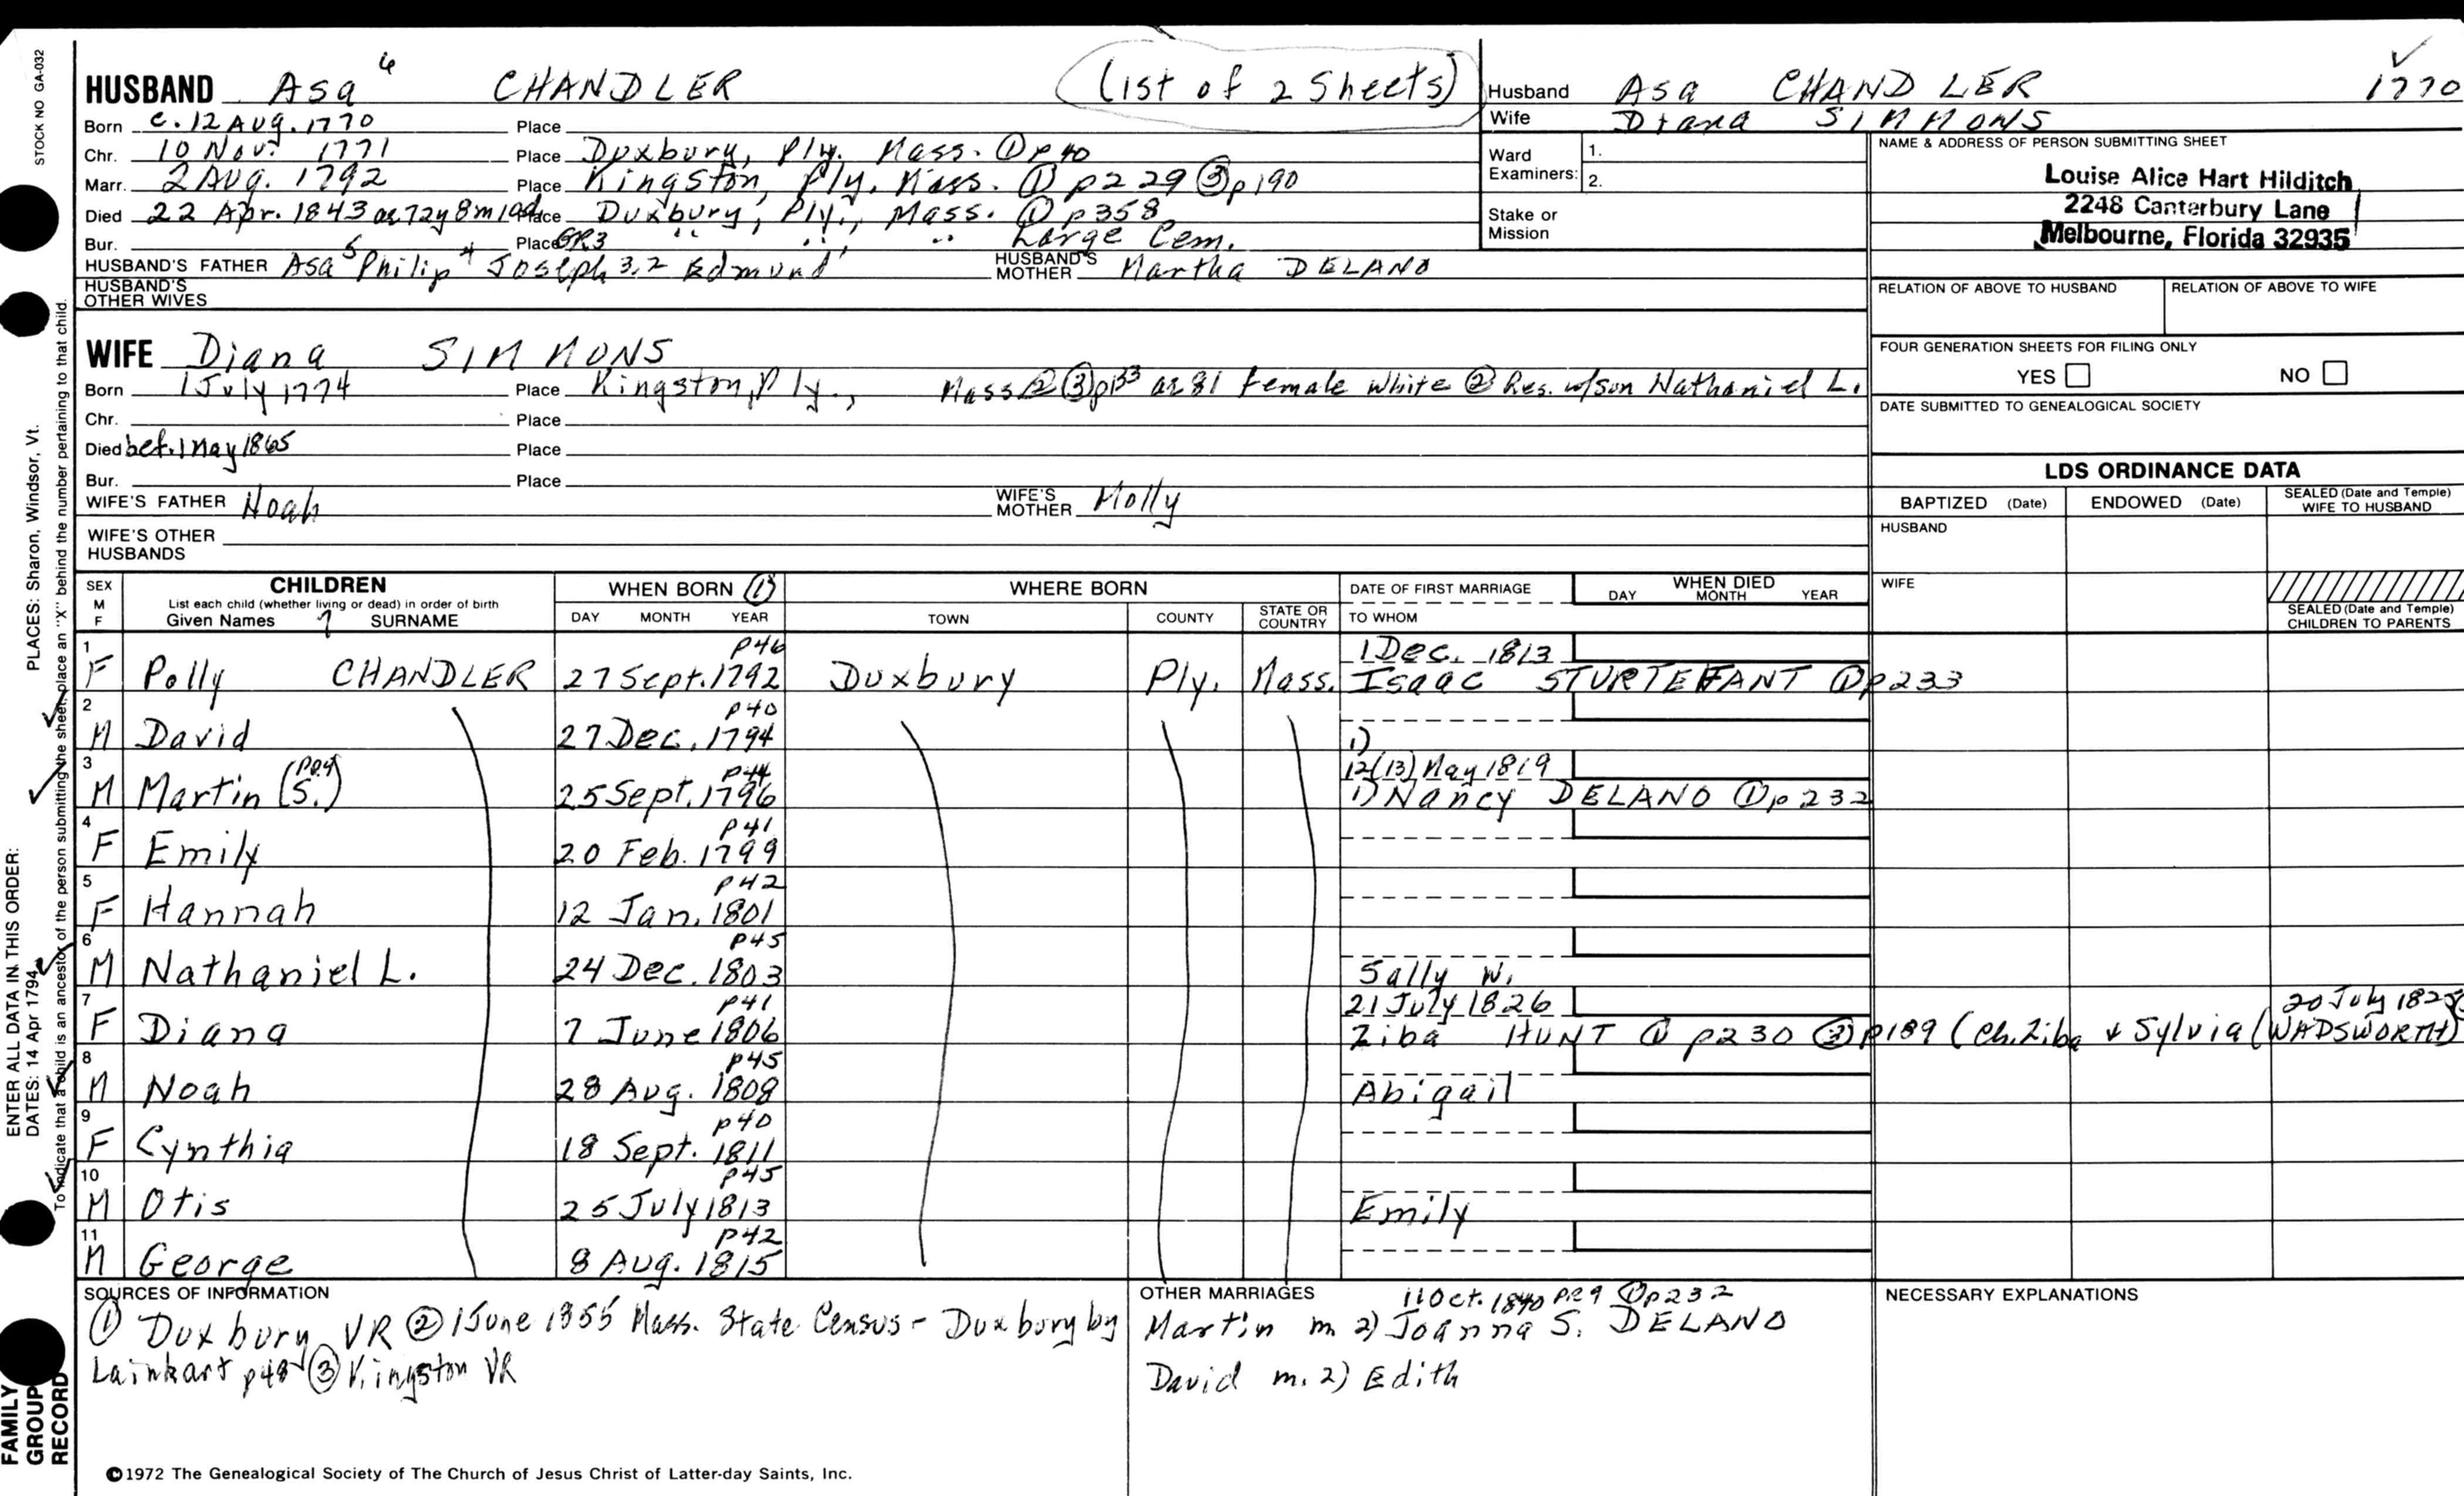 STOCK NO GA-032
HUSBAND Asa 6 CHANDLER (1st of 2 Sheets)
Born c. 12 Aug. 1770 Place
Chr. 10 Nov. 1771 Place Duxbury, Ply. Mass. ① p40
Marr. 2 Aug. 1792 Place Kingston, Ply. Mass. ① p229 ③ p190
Died 22 Apr. 1843 ae 72y 8m 10d Place Duxbury, Ply., Mass. ① p358
Bur. Place GR3 " " " Large Cem.
HUSBAND'S FATHER Asa 5 Philip 4 Joseph 3,2 Edmund 1 HUSBAND'S MOTHER Martha DELANO
HUSBAND'S OTHER WIVES
Husband Asa CHANDLER ✓ 1770
Wife Diana SIMMONS
Ward Examiners: 1.
2.
Stake or Mission
NAME & ADDRESS OF PERSON SUBMITTING SHEET
Louise Alice Hart Hilditch
2248 Canterbury Lane
Melbourne, Florida 32935
RELATION OF ABOVE TO HUSBAND RELATION OF ABOVE TO WIFE
FOUR GENERATION SHEETS FOR FILING ONLY
YES NO
DATE SUBMITTED TO GENEALOGICAL SOCIETY
WIFE Diana SIMMONS
Born 1 July 1774 Place Kingston, Ply., Mass ② ③ p133 ae 81 Female White ② Res. w/son Nathaniel L.
Chr. Place
Died bef. 1 May 1865 Place
Bur. Place
WIFE'S FATHER Noah WIFE'S MOTHER Molly
WIFE'S OTHER HUSBANDS
LDS ORDINANCE DATA
BAPTIZED (Date) ENDOWED (Date) SEALED (Date and Temple) WIFE TO HUSBAND
HUSBAND
WIFE
SEALED (Date and Temple) CHILDREN TO PARENTS
SEX M F CHILDREN WHEN BORN ① WHERE BORN DATE OF FIRST MARRIAGE WHEN DIED
List each child (whether living or dead) in order of birth DAY MONTH YEAR
Given Names SURNAME DAY MONTH YEAR TOWN COUNTY STATE OR COUNTRY TO WHOM
1 p46 1 Dec. 1813
F Polly CHANDLER 27 Sept. 1792 Duxbury Ply. Mass. Isaac STURTEFANT ① p233
2 p40
M David 27 Dec. 1794 1)
3 p44 12(13) May 1819
M Martin (S.) 25 Sept. 1796 1) Nancy DELANO ① p232
4 p41
F Emily 20 Feb. 1799
5 p42
F Hannah 12 Jan. 1801
6 p45
M Nathaniel L. 24 Dec. 1803 Sally W.
7 p41 21 July 1826 20 July
F Diana 7 June 1806 Ziba HUNT ① p230 ③ p189 (Ch. Ziba & Sylvia (WADSWORTH)
8 p45
M Noah 28 Aug. 1808 Abigail
9 p40
F Cynthia 18 Sept. 1811
10 p45
M Otis 25 July 1813 Emily
11 p42
M George 8 Aug. 1815
SOURCES OF INFORMATION
① Duxbury VR ② 1 June 1855 Mass. State Census - Duxbury by
Lainhart p48 ③ Kingston VR
OTHER MARRIAGES 11 Oct. 1840 ① p232
Martin m 2) Joanna S. DELANO
David m. 2) Edith
NECESSARY EXPLANATIONS
©1972 The Genealogical Society of The Church of Jesus Christ of Latter-day Saints, Inc.
ENTER ALL DATA IN THIS ORDER:
DATES: 14 Apr 1794 PLACES: Sharon, Windsor, Vt.
To indicate that a child is an ancestor of the person submitting the sheet, place an "X" behind the number pertaining to that child.
FAMILY GROUP RECORD